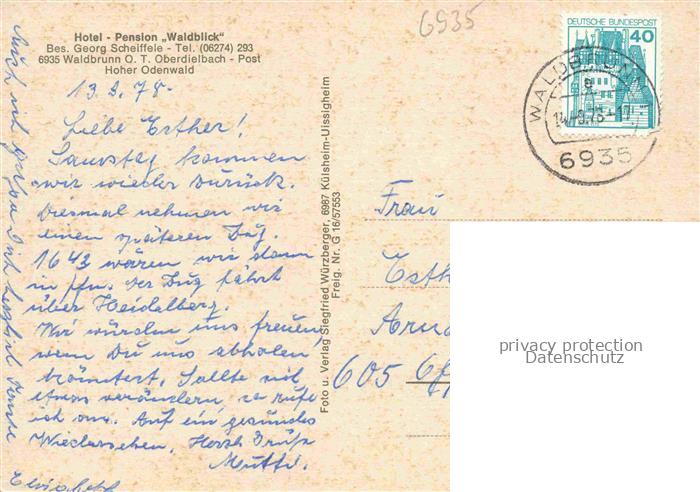 Hotel - Pension „Waldblick"
Bes. Georg Scheiffele - Tel. (06274) 293
6935 Waldbrunn O. T. Oberdielbach - Post
Hoher Odenwald
6935
DEUTSCHE BUNDESPOST
40
6935
13.9.78.
Liebe Esther!
Samstag kommen
wir wieder zurück.
Diesmal nehmen wir
einen späteren Zug.
1642 wären wir dann
in Ffm. der Zug fährt
über Heidelberg.
Wir würden uns freuen,
wenn Du uns abholen
könntest. Sollte sich
etwas verändern, so rufe
ich an. Auf ein gesundes
Wiedersehen. Herzl. Grüße
Mutti.
Auch ich grüße Dich herzlich Tante
Foto u. Verlag Siegfried Würzberger, 6987 Külsheim-Uissigheim
Freig. Nr. G 16/57553
Frau
Esth
605
privacy protection
Datenschutz